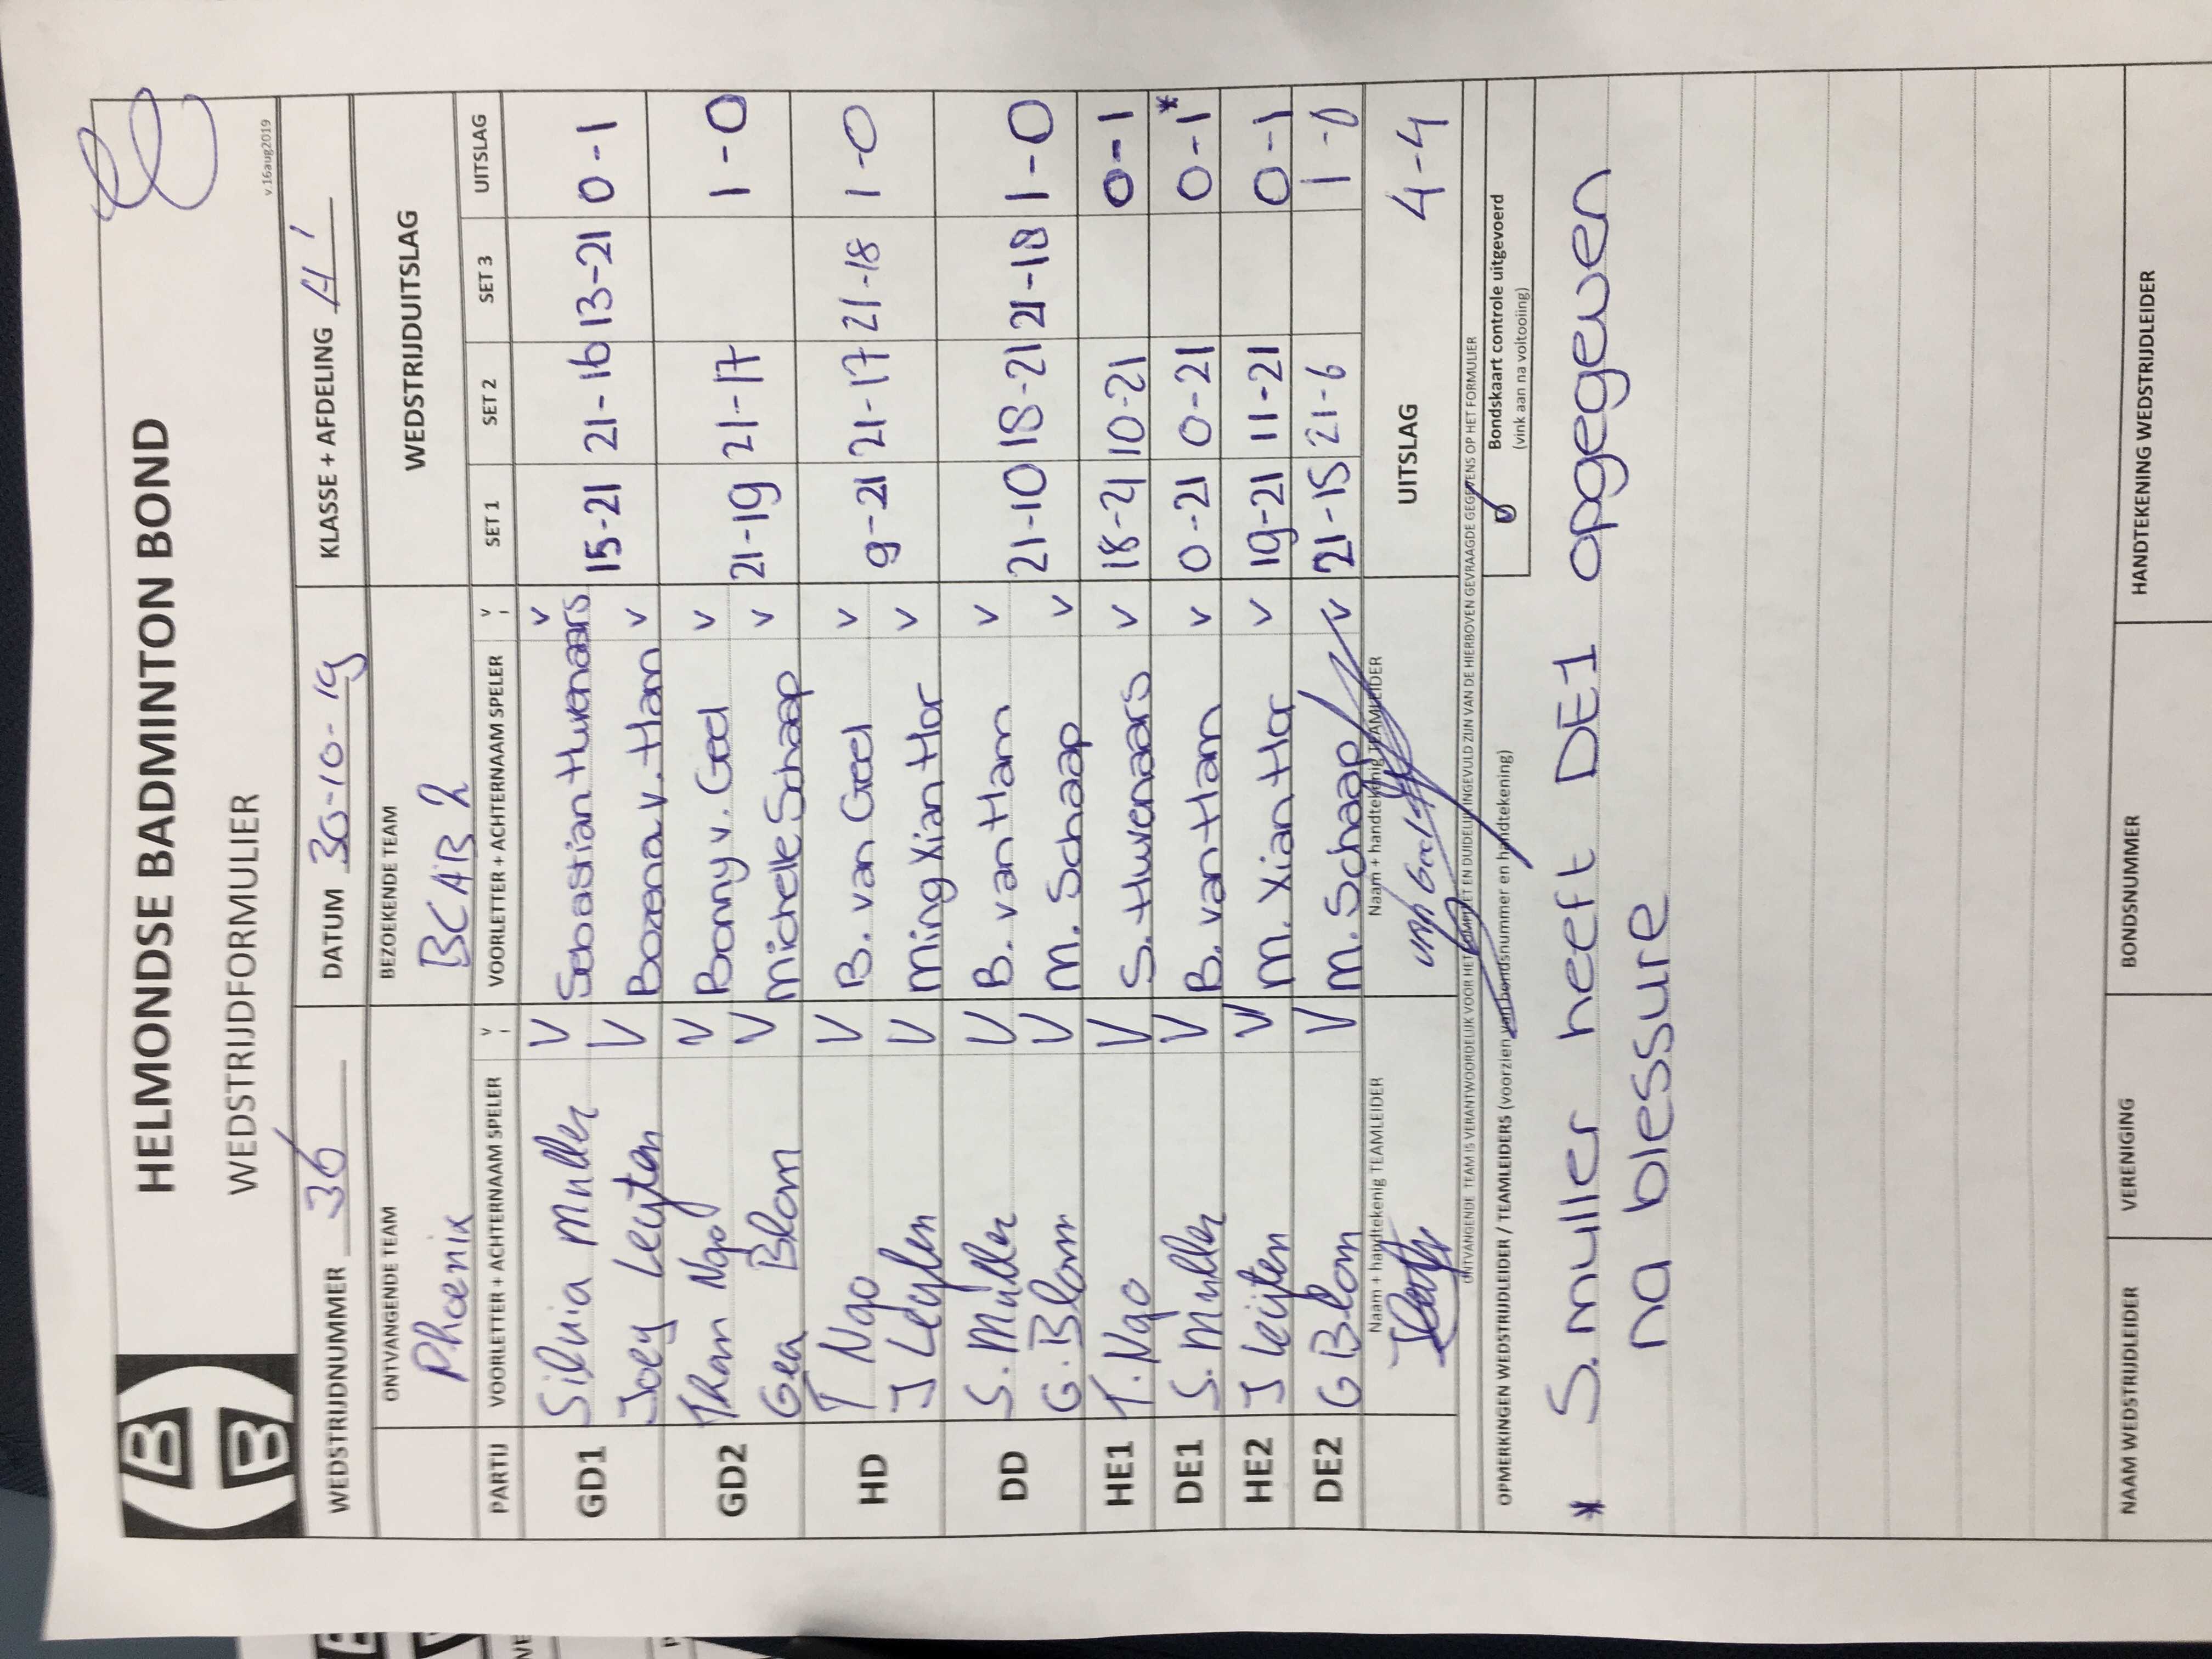 HELMONDSE BADMINTON BOND
WEDSTRIJDFORMULIER
v.16aug2019
WEDSTRIJDNUMMER 36 DATUM 30-10-19 KLASSE + AFDELING
ONTVANGENDE TEAM BEZOEKENDE TEAM WEDSTRIJDUITSLAG
Phoenix BCAB 2
PARTIJ VOORLETTER + ACHTERNAAM SPELER V VOORLETTER + ACHTERNAAM SPELER V SET 1 SET 2 SET 3 UITSLAG
GD1 Silvia Muller V Sebastian Huvenaars V
Joey Leyten V Bozena v. Ham V 15-21 21-16 13-21 0-1
GD2 Than Ngo V Bonny v. Geel V
Gea Blom V Michelle Schaap V 21-19 21-17 1-0
HD T Ngo V B. van Geel V
J Leyten V Ming Xian Hor V 9-21 21-17 21-18 1-0
DD S. Muller V B. van Ham V
G. Blom V M. Schaap V 21-10 18-21 21-18 1-0
HE1 T. Ngo V S. Huvenaars V 18-21 10-21 0-1
DE1 S. Muller V B. van Ham V 0-21 0-21 0-1*
HE2 J Leijten V M. Xian Hor V 19-21 11-21 0-1
DE2 G Blom V M. Schaap V 21-15 21-6 1-0
Naam + handtekenig TEAMLEIDER Naam + handtekenig TEAMLEIDER UITSLAG 4-4
van Geel
ONTVANGENDE TEAM IS VERANTWOORDELIJK VOOR HET COMPLEET EN DUIDELIJK INGEVULD ZIJN VAN DE HIERBOVEN GEVRAAGDE GEGEVENS OP HET FORMULIER
OPMERKINGEN WEDSTRIJDLEIDER / TEAMLEIDERS (voorzien van bondsnummer en handtekening) Bondskaart controle uitgevoerd
(vink aan na voltooiing)
* S. muller heeft DE1 opgegeven
na blessure
NAAM WEDSTRIJDLEIDER VERENIGING BONDSNUMMER HANDTEKENING WEDSTRIJDLEIDER